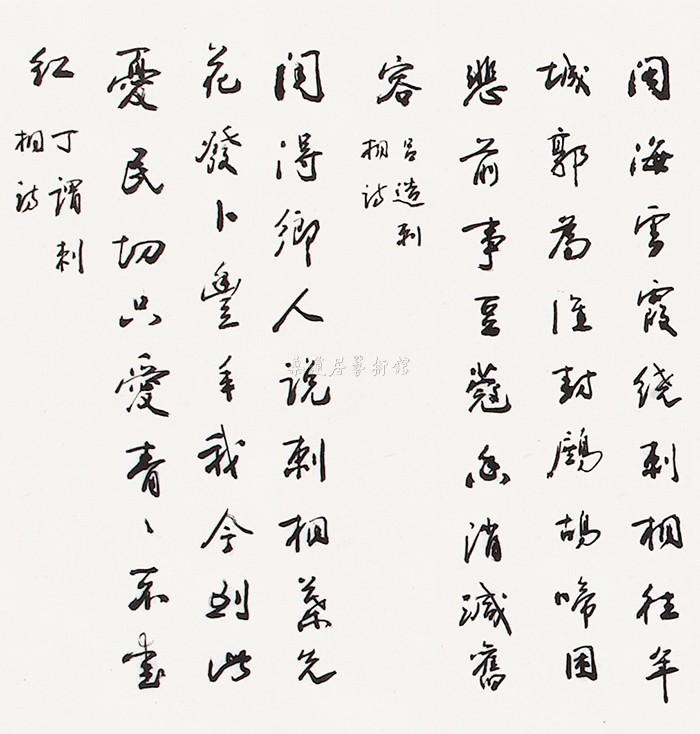 闽海雲霞绕刺桐往年
城郭為谁封鷓鴣啼困
悲前事豆蔻香消減舊
容
吕造刺
桐诗
闻得鄉人说刺桐葉先
花發卜豐年我今到此
憂民切只愛青々不爱
红
丁謂刺
桐诗
居藝術館